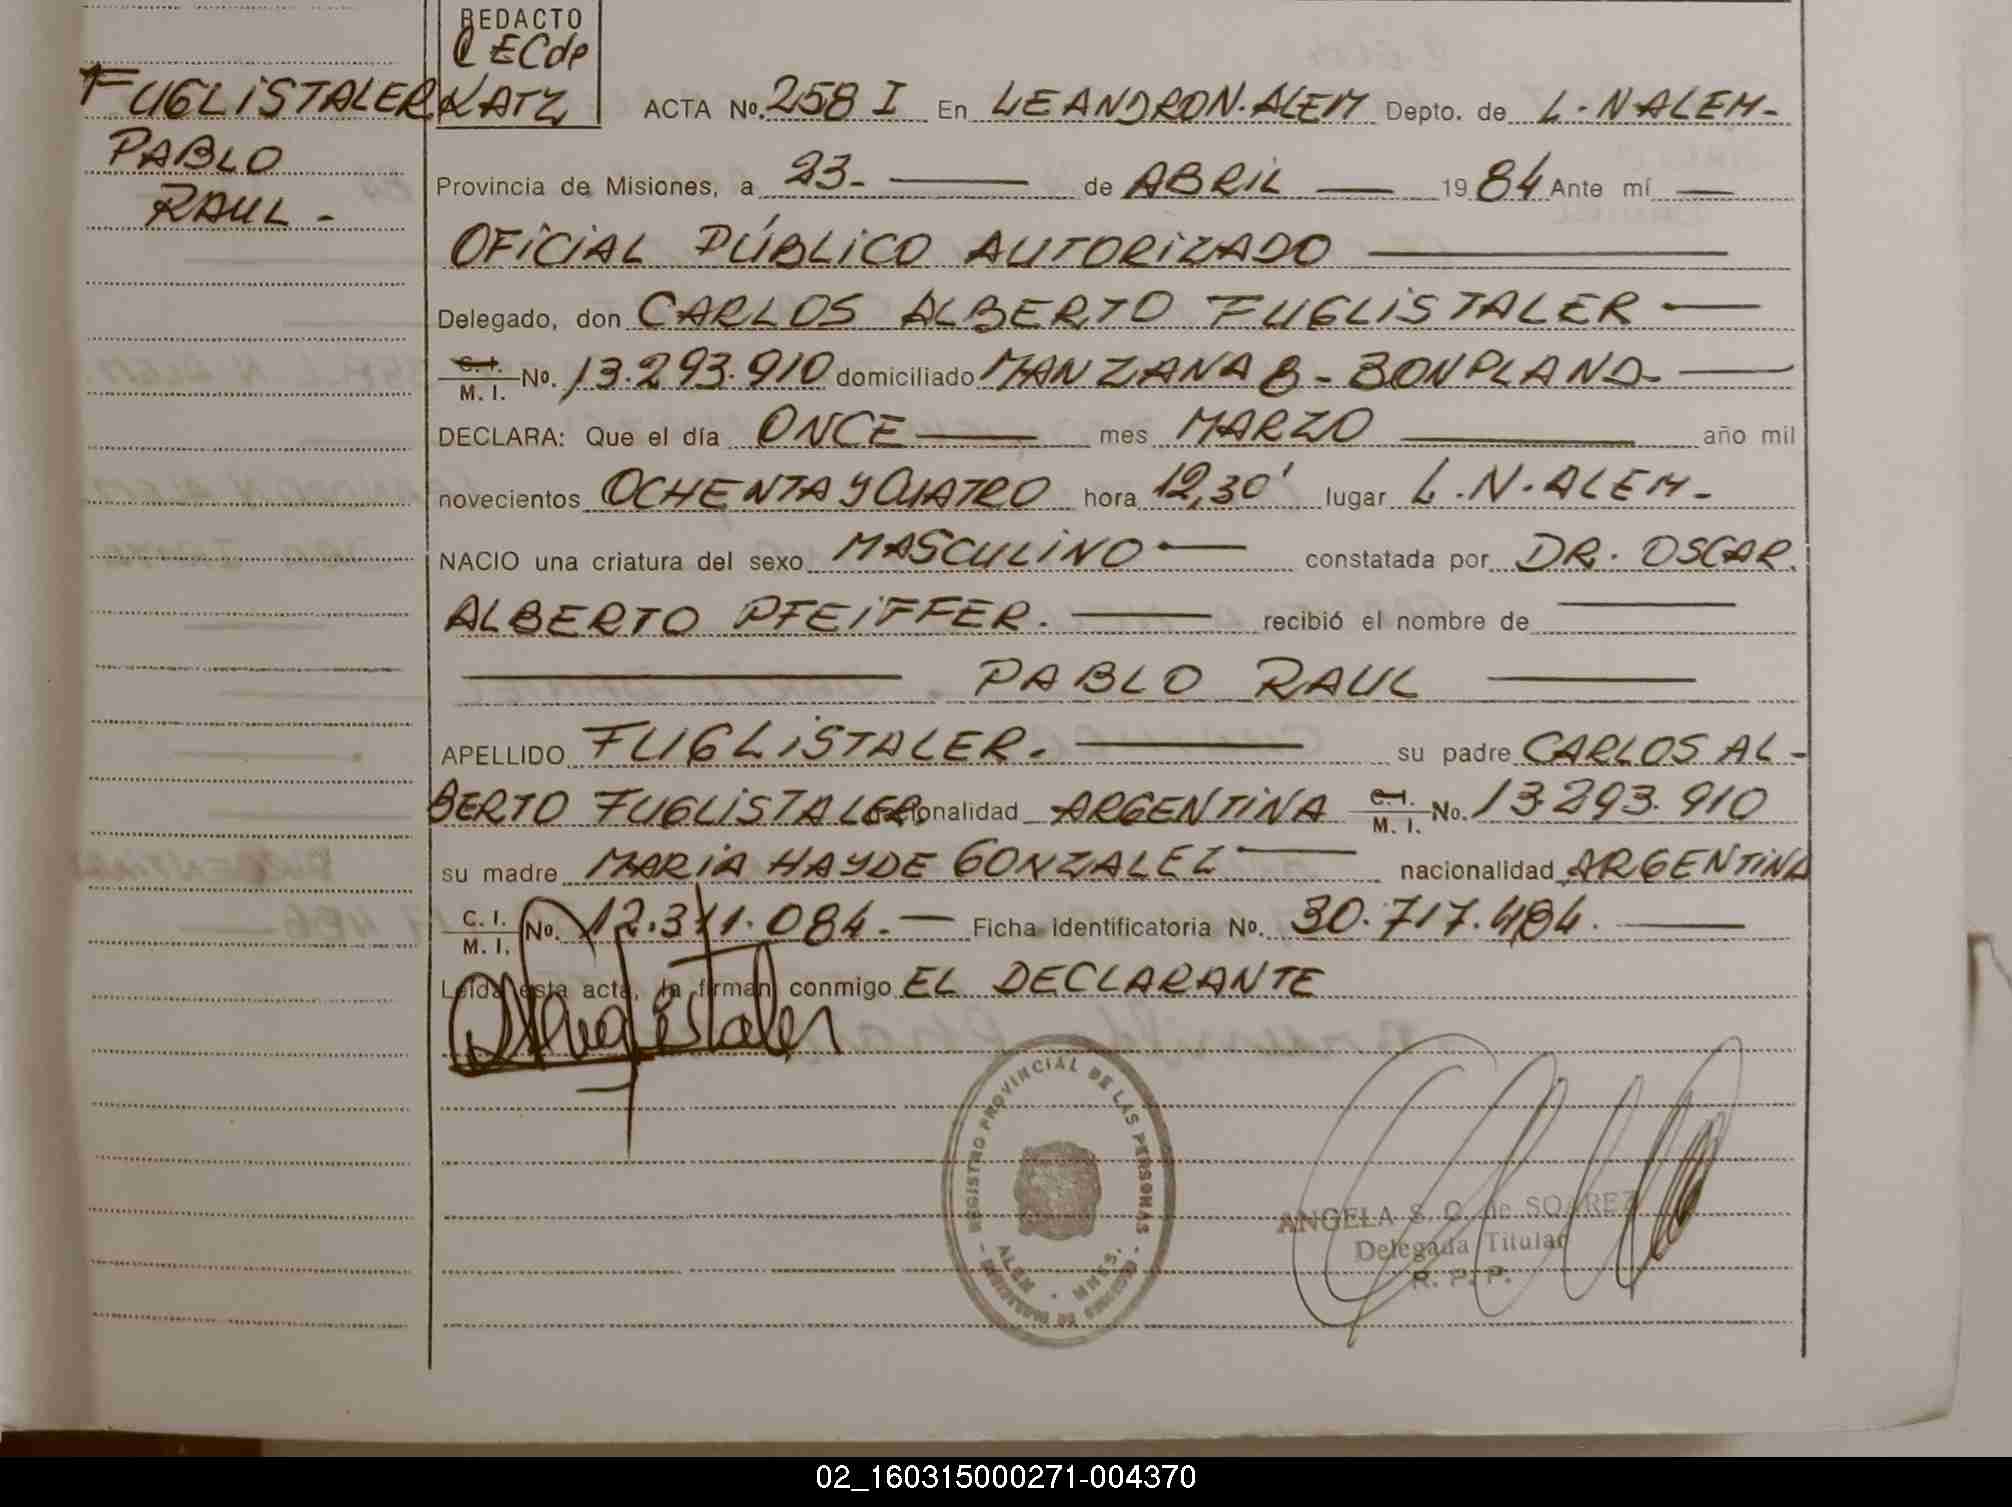 REDACTO
CECde
KATZ
FUGLISTALER
PABLO
RAUL -
ACTA No. 258 I En LEANDRO N. ALEM Depto. de L. N ALEM -
Provincia de Misiones, a 23 - de ABRIL 19 84 Ante mí
OFICIAL PÚBLICO AUTORIZADO
Delegado, don CARLOS ALBERTO FUGLISTALER
C. I.
M. I. No. 13.293.910 domiciliado MANZANA 8 - BONPLAND -
DECLARA: Que el día ONCE mes MARZO año mil
novecientos OCHENTA Y CUATRO hora 12,30' lugar L. N. ALEM -
NACIO una criatura del sexo MASCULINO constatada por DR. OSCAR
ALBERTO PFEIFFER. recibió el nombre de
PABLO RAUL
APELLIDO FUGLISTALER. su padre CARLOS AL-
BERTO FUGLISTALER. nacionalidad ARGENTINA C. I. / M. I. No. 13.293.910
su madre MARIA HAYDE GONZALEZ nacionalidad ARGENTINA
C. I.
M. I. No. 12.311.084. - Ficha identificatoria No. 30.717.484.
Leída esta acta, la firman conmigo EL DECLARANTE
Fuglistaler
REGISTRO PROVINCIAL DE LAS PERSONAS
ALEM - MNES.
ANGELA S. C. de SOAREZ
Delegada Titular
R. P. P.
02_160315000271-004370